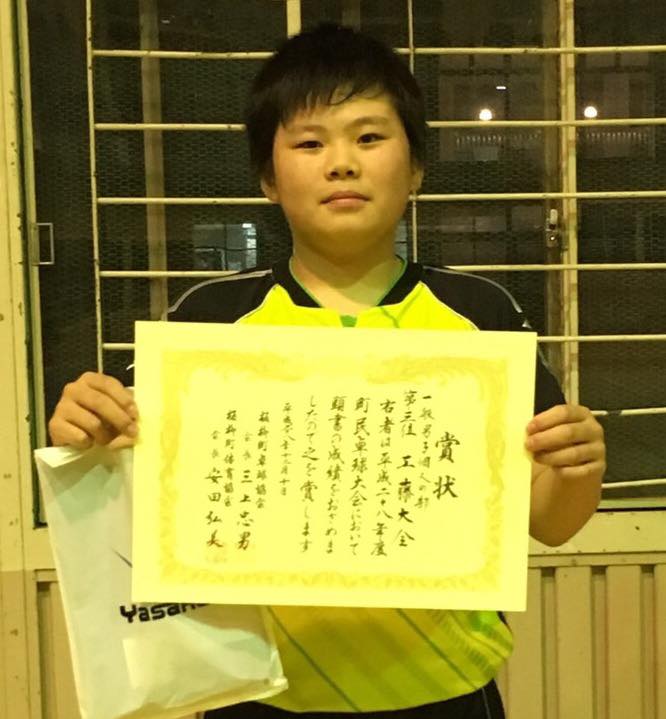 賞状
一般男子個人の部
第三位 工藤大全
右者は平成二十八年度
町民卓球大会において
頭書の成績をおさめま
したので之を賞します
平成廿八年十二月十日
板柳町卓球協会
会長 三上忠男
板柳町体育協会
会長 安田弘美
Yasaka